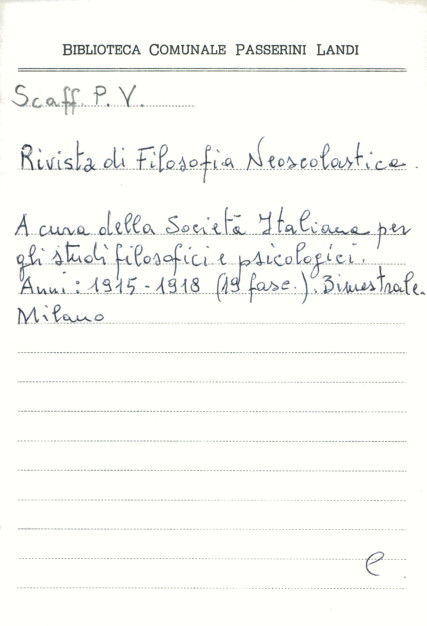 BIBLIOTECA COMUNALE PASSERINI LANDI
Scaff. P. V.
Rivista di Filosofia Neoscolastica.
A cura della Società Italiana per
gli studi filosofici e psicologici.
Anni: 1915-1918 (19 fasc.). Bimestrale.
Milano
e